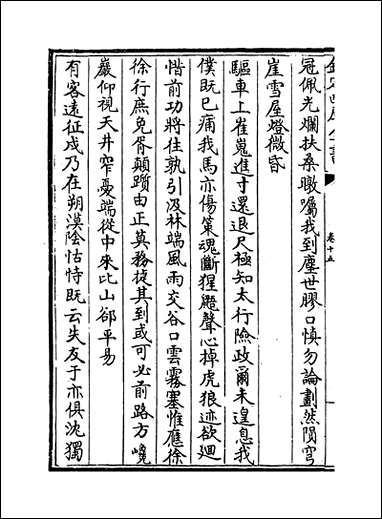 卷十五
冠佩光爛扶桑暾囑我到塵世膠口慎勿論劃然隕穹
崖雪屋燈微昏
驅車上崔嵬進寸還退尺極知太行險政爾未遑息我
僕既已痡我馬亦傷策魂斷猩鼯聲心掉虎狼迹欲迴
惜前功將往孰引汲林端風雨交谷口雲霧塞惟應徐
徐行庶免胥顛躓由正莫務捷其到或可必前路方巉
巖仰視天井窄憂端從中來比山郤平易
有客遠征戍乃在朔漠陰怙恃既云失友于亦俱沈獨